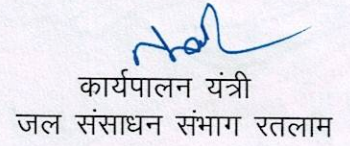 कार्यपालन यंत्री
जल संसाधन संभाग रतलाम